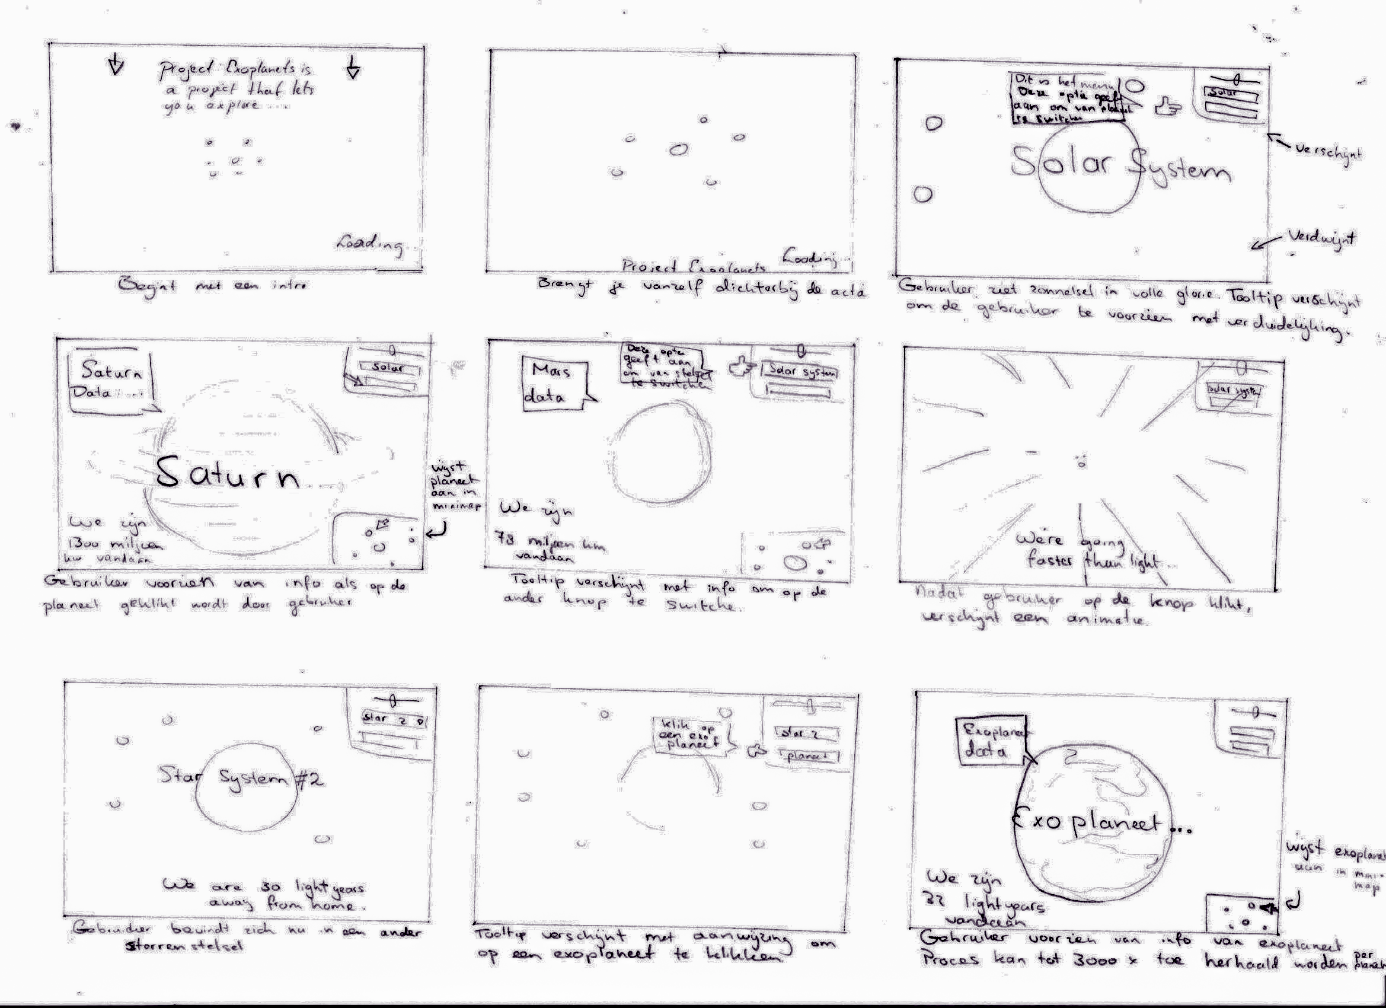 Project Exoplanets is
a project that lets
you explore ....
Loading...
Begint met een intro
Project Exoplanets
Loading...
Brengt je vanzelf dichterbij de actie
Dit is het menu
Deze optie geeft
aan om van planeet
te switchen
Solar
Solar System
Verschijnt
Verdwijnt
Gebruiker ziet zonnestelsel in volle glorie. Tooltip verschijnt
om de gebruiker te voorzien met verduidelijking.
Saturn
Data ....
Solar
Saturn
We zijn
1300 miljoen
km vandaan
wijst
planeet
aan in
minimap
Gebruiker voorzien van info als op de
planeet geklikt wordt door gebruiker
Mars
data
Deze optie
geeft aan
om van stelsel
te switchen
Solar system
We zijn
78 miljoen km
vandaan
Tooltip verschijnt met info om op de
ander knop te switche.
Solar system
We're going
faster than light...
Nadat gebruiker op de knop klikt,
verschijnt een animatie.
Star 2
Star System #2
We are 30 lightyears
away from home.
Gebruiker bevindt zich nu in een ander
sterrenstelsel
Klik op
een exo
planeet
star 2
planeet
Tooltip verschijnt met aanwijzing om
op een exoplaneet te klikken
Exoplaneet
data
Exoplaneet...
We zijn
32 lightyears
vandaan
wijst exoplaneet
aan in mini-
map
Gebruiker voorzien van info van exoplaneet
Proces kan tot 3000 x toe herhaald worden per
planeet